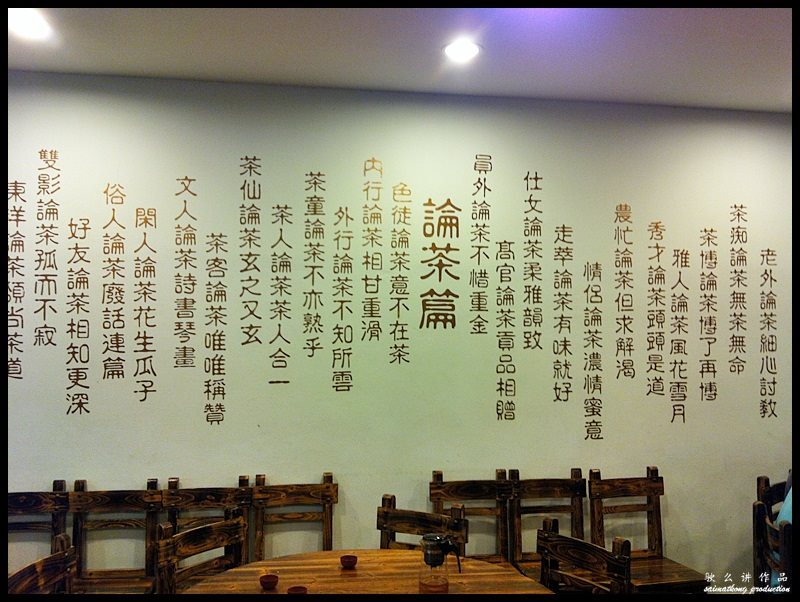 老外論茶細心討教
茶痴論茶無茶無命
茶博論茶博了再博
雅人論茶風花雪月
秀才論茶頭頭是道
農忙論茶但求解渴
情侶論茶濃情蜜意
走卒論茶有味就好
仕女論茶柔雅韻致
高官論茶貢品相贈
員外論茶不惜重金
論茶篇
色徒論茶意不在茶
內行論茶相甘重滑
外行論茶不知所雲
茶童論茶不亦熟乎
茶人論茶茶人合一
茶仙論茶玄之又玄
茶客論茶唯唯稱贊
文人論茶詩書琴畫
閑人論茶花生瓜子
俗人論茶廢話連篇
好友論茶相知更深
雙影論茶孤而不寂
東洋論茶頗尚茶道
耿么讲作品
saimatkong production